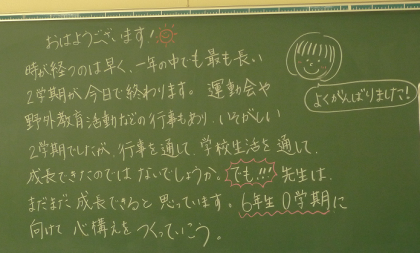 おはようございます!
時が経つのは早く、一年の中でも最も長い
2学期が今日で終わります。運動会や
野外教育活動などの行事もあり、いそがしい
2学期でしたが、行事を通して、学校生活を通して、
成長できたのではないでしょうか。でも!!!先生は、
まだまだ成長できると思っています。6年生0学期に
向けて心構えをつくっていこう。
よくがんばりました!